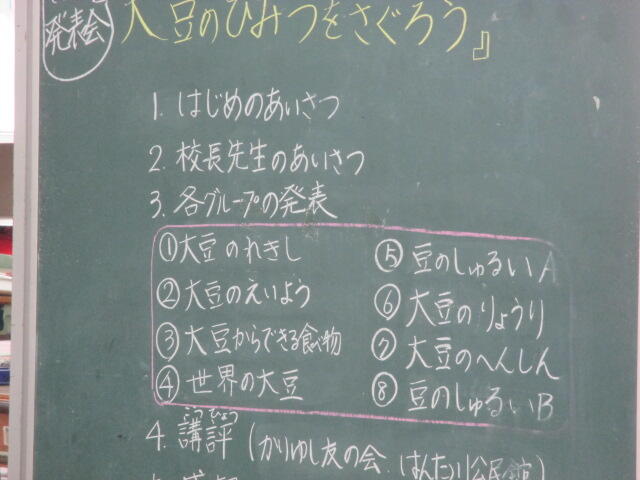 発表会
大豆のひみつをさぐろう』
1. はじめのあいさつ
2. 校長先生のあいさつ
3. 各グループの発表
①大豆のれきし
②大豆のえいよう
③大豆からできる食べ物
④世界の大豆
⑤豆のしゅるいA
⑥大豆のりょうり
⑦大豆のへんしん
⑧豆のしゅるいB
こうひょう
4. 講評(がりゆし友の会.はんたばる公民館)